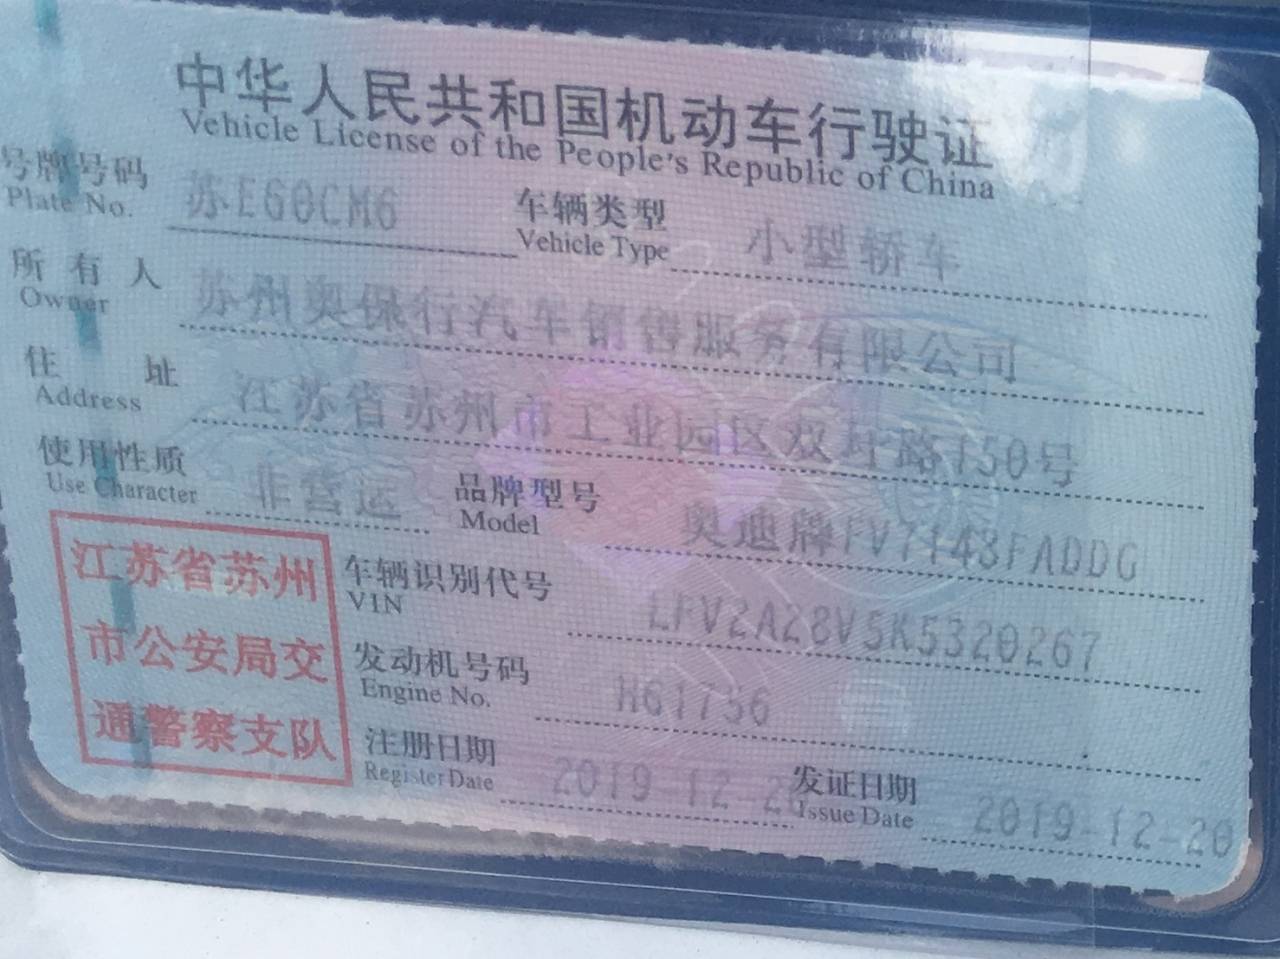 中华人民共和国机动车行驶证
Vehicle License of the People's Republic of China
号牌号码 苏E60CM6 车辆类型 小型轿车
Plate No. Vehicle Type
所有人 苏州奥保行汽车销售服务有限公司
Owner
住址 江苏省苏州市工业园区双圩路150号
Address
使用性质 非营运 品牌型号 奥迪牌FV7148FADDG
Use Character Model
江苏省苏州
市公安局交
通警察支队
车辆识别代号 LFV2A28V5K5320267
VIN
发动机号码 H61756
Engine No.
注册日期 2019-12-20 发证日期 2019-12-20
Register Date Issue Date